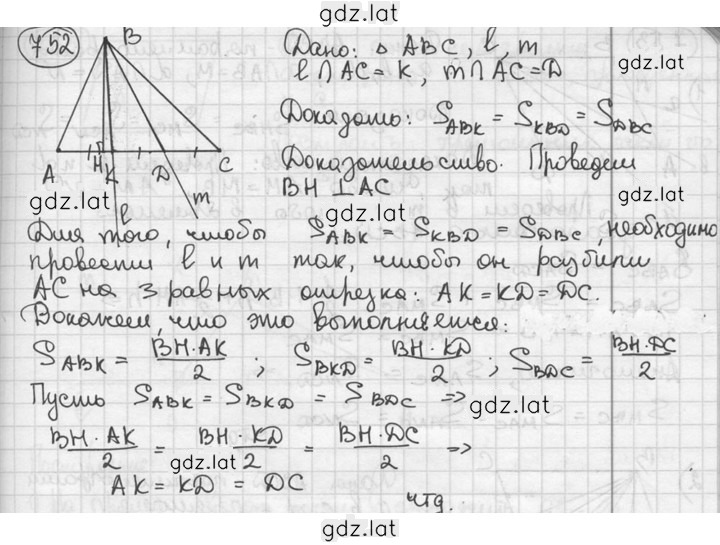 gdz.lat
752
B
A
H
K
D
C
l
m
Дано: △ ABC, l, m
l ∩ AC = K, m ∩ AC = D
gdz.lat
Доказать: S_ABK = S_KBD = S_DBC
Доказательство. Проведем
BH ⊥ AC
gdz.lat
gdz.lat
gdz.lat
Для того, чтобы S_ABK = S_KBD = S_DBC, необходимо
провести l и m так, чтобы он разбили
AC на 3 равных отрезка: AK = KD = DC.
Докажем, что это выполняется:
S_ABK = BH·AK/2 ; S_BKD = BH·KD/2 ; S_BDC = BH·DC/2
Пусть S_ABK = S_BKD = S_BDC =>
gdz.lat
BH·AK/2 = BH·KD/2 = BH·DC/2 =>
gdz.lat
AK = KD = DC
чтд.
gdz.lat